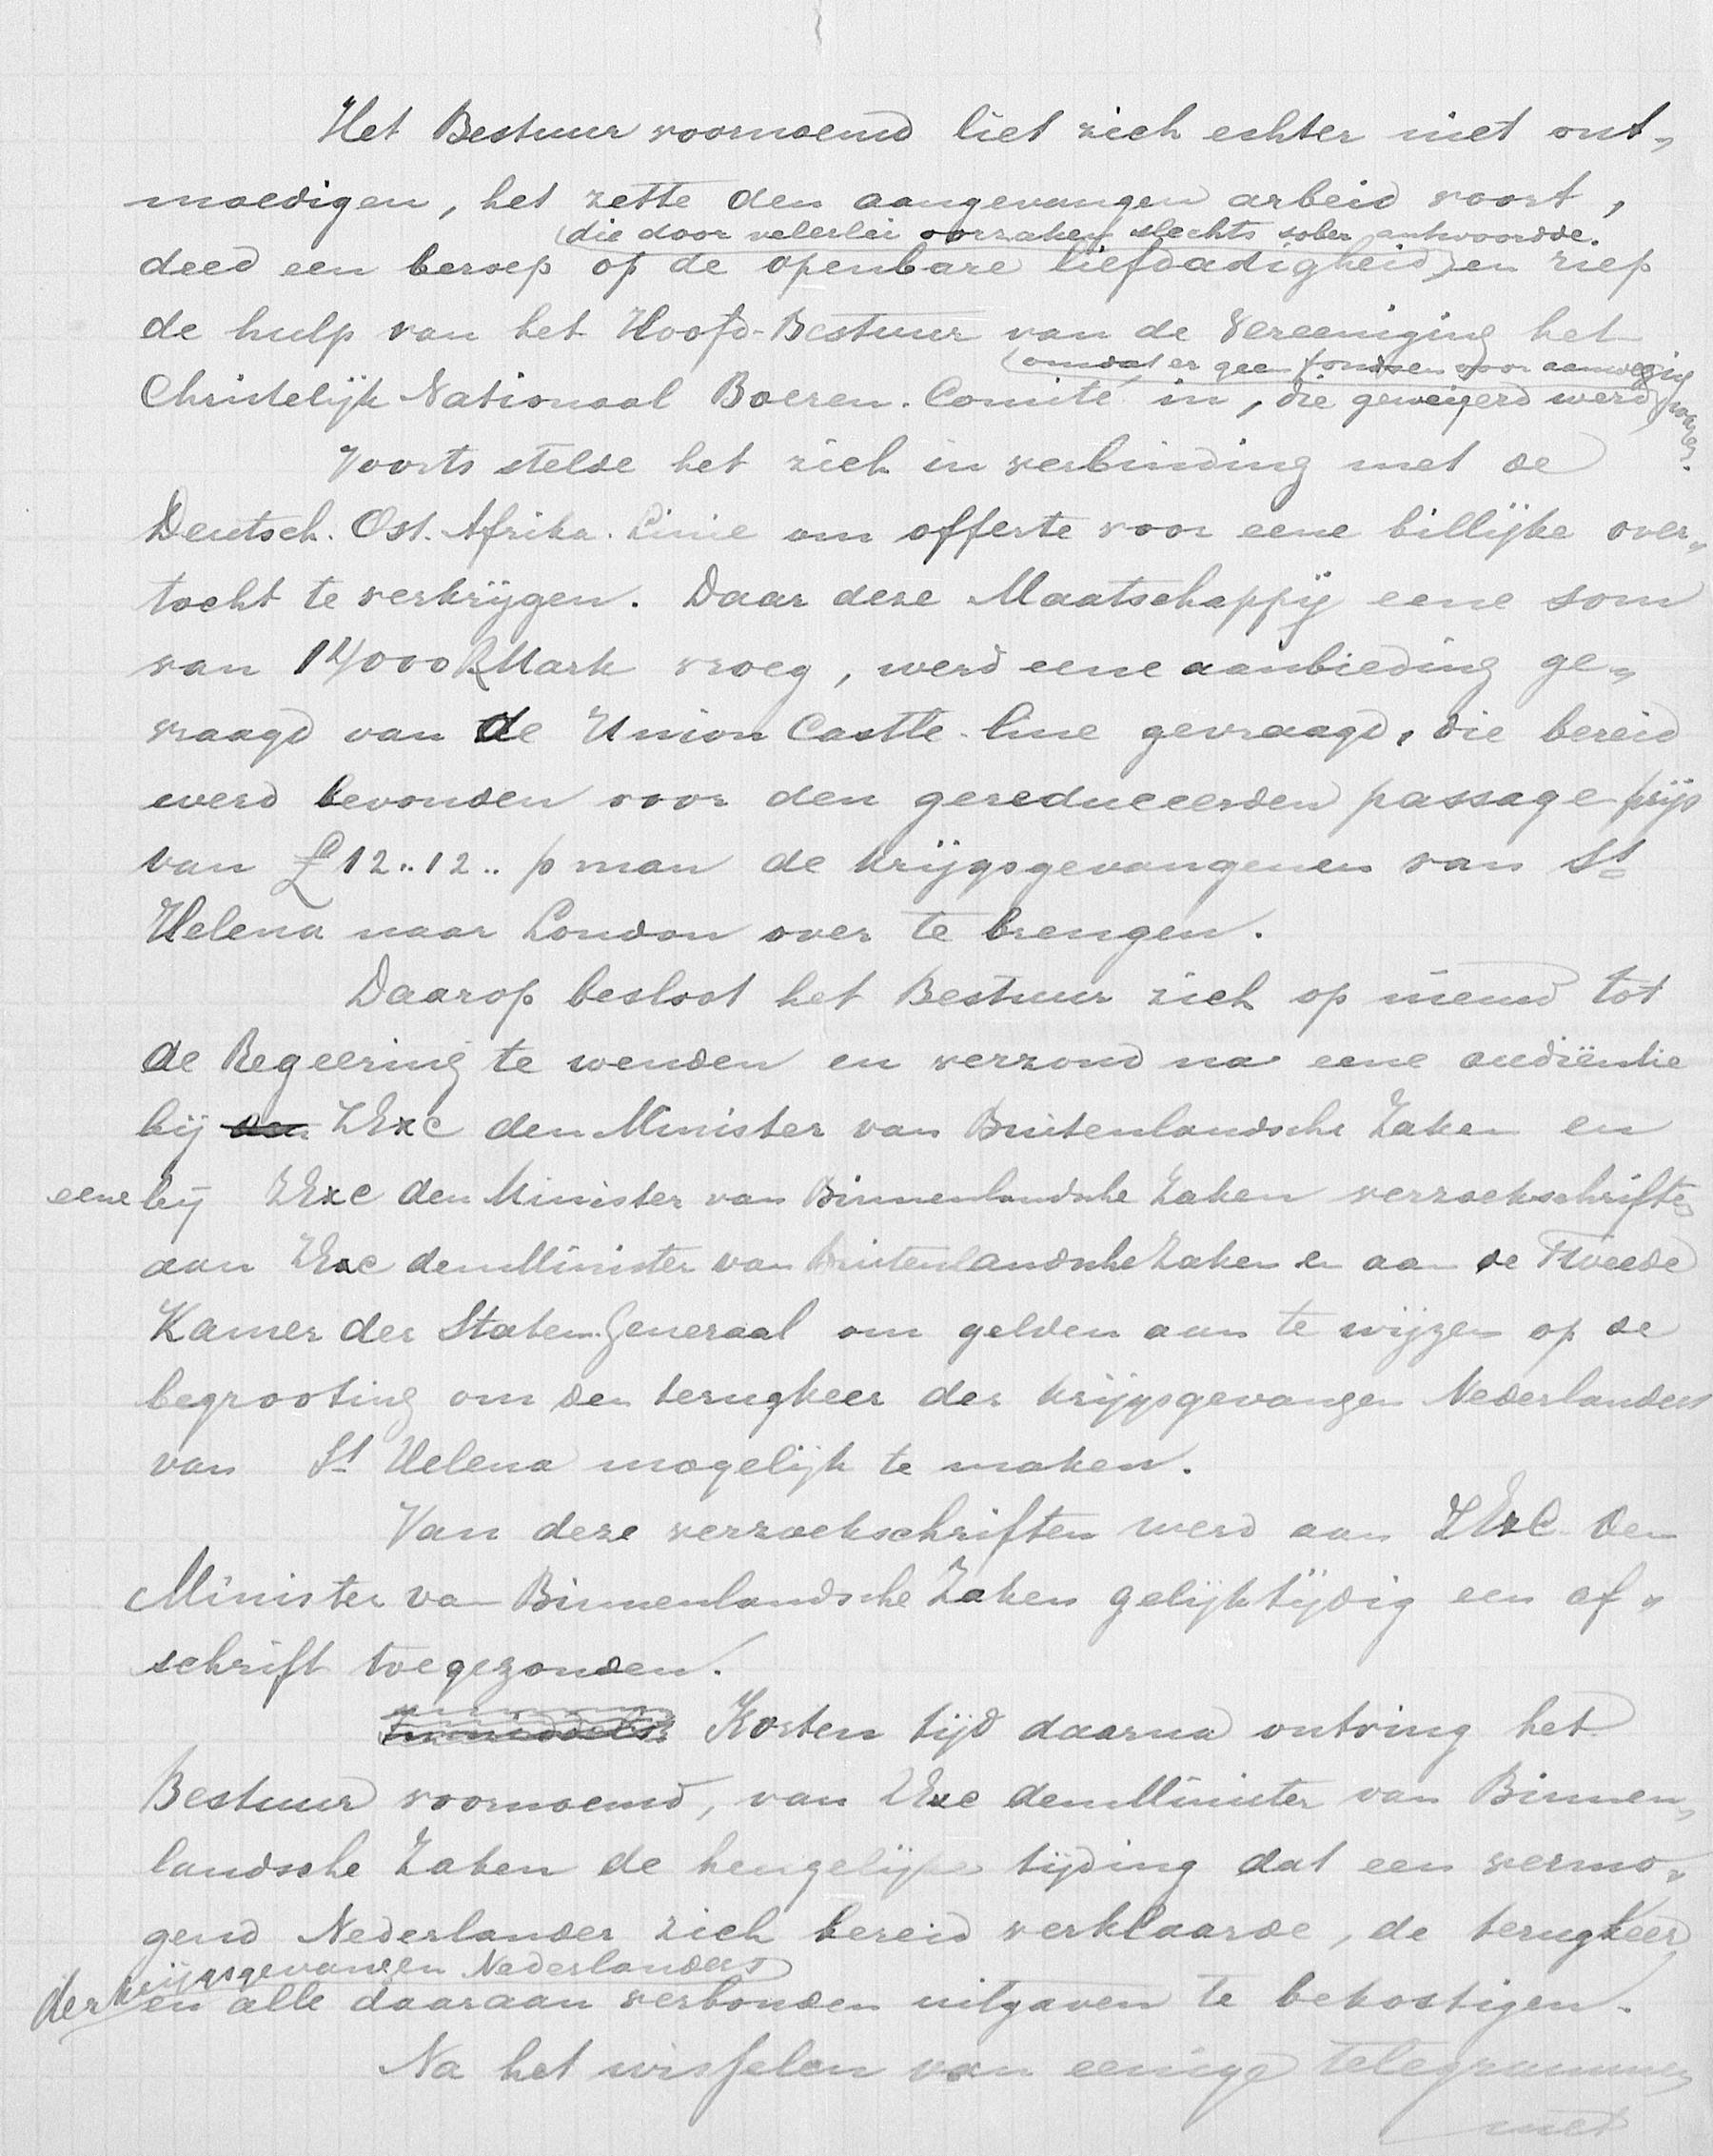 Het Bestuur voornoemd liet zich echter niet ont„
moedigen, het zette den aangevangen arbeid voort,
(die door velerlei oorzaken slechts sober antwoordde.
deed een beroep op de openbare liefdadigheid) en riep
de hulp van het Hoofd-Bestuur van de Vereeniging het
(omdat er geen fondsen voor aanwezig
Christelijk Nationaal Boeren-Comité in, die geweigerd werd) waren.
Voorts stelde het zich in verbinding met de
Deutsch. Ost. Afrika. Linie om offerte voor eene billijke over„
tocht te verkrijgen. Daar deze Maatschappij eene som
van 14000 RMark vroeg, werd eene aanbieding ge„
vraagd van de Union Castle-line gevraagd, die bereid
werd bevonden voor den gereduceerden passage prijs
van £ 12..12.. p man de krijgsgevangenen van St
Helena naar London over te brengen.
Daarop besloot het Bestuur zich op nieuw tot
de Regeering te wenden en verzond na eene audiëntie
bij den ZExc den Minister van Buitenlandsche Zaken en
eene bij ZExc den Minister van Binnenlandsche Zaken verzoekschriften
aan ZExc den Minister van Buitenlandsche Zaken en aan de Tweede
Kamer der Staten-Generaal om gelden aan te wijzen op de
begrooting om den terugkeer der krijgsgevangen Nederlanders
van St Helena mogelijk te maken.
Van deze verzoekschriften werd aan ZExc den
Minister van Binnenlandsche Zaken gelijktijdig een af„
schrift toegezonden.
Inmiddels Korten tijd daarna ontving het
Bestuur voornoemd, van ZExc den Minister van Binnen„
landsche Zaken de heugelijke tijding dat een vermo„
gend Nederlander zich bereid verklaarde, de terugkeer
der krijgsgevangen Nederlanders
en alle daaraan verbonden uitgaven te bekostigen.
Na het wisselen van eenige telegrammen
met